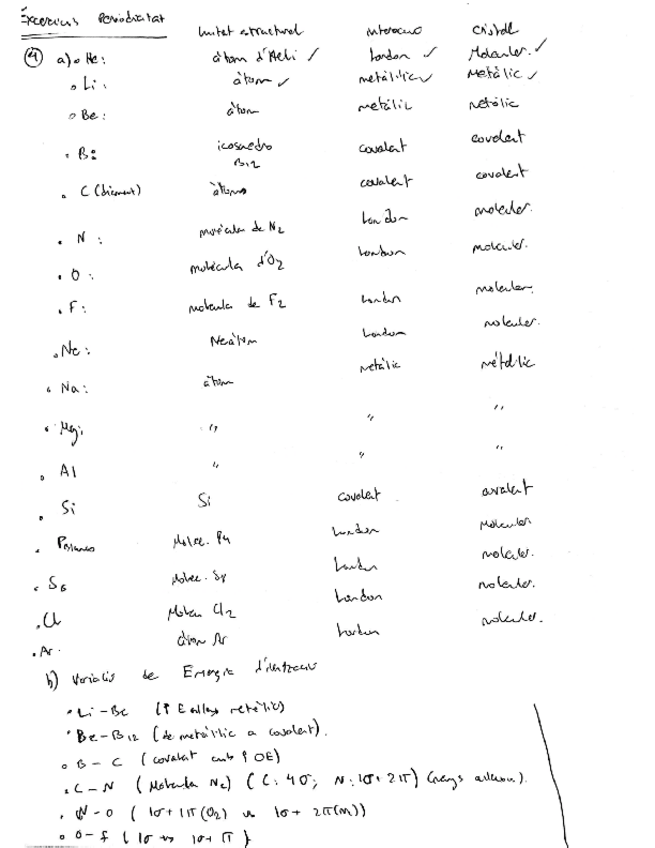 Exercicis Periodicitat
Unitat estructural interacció cristall
④ a) • He: àtom d'Heli ✓ London ✓ Molecular. ✓
• Li: àtom ✓ metàl·lic ✓ Metàl·lic ✓
• Be: àtom metàlic metàlic
• B: icosaedre B12 covalent covalent
• C (diamant) àtoms covalent covalent
• N: molècula de N2 London molecular.
• O: molècula d'O2 London molecular.
• F: molecula de F2 London molecular.
• Ne: Ne àtom London molecular.
• Na: àtom metàlic metàl·lic
• Mg: " " "
• Al " " "
• Si Si covalent covalent
• P blanco Molec. P4 London Molecular
• S8 Molec. S8 London molecular.
• Cl Molec Cl2 London molecular.
• Ar. àtom Ar London molecular.
b) Variació de Energia d'
• Li-Be (↑ E enllaç metàlic)
• Be-B12 (de metàl·lic a covalent).
• B-C (covalent amb ↑ OE)
• C-N (Molecula N2) (C: 4σ; N: 1σ+2π)
• N-O (1σ+1π(O2) vs 1σ+2π(N))
• O-F (1σ vs 1σ+π)